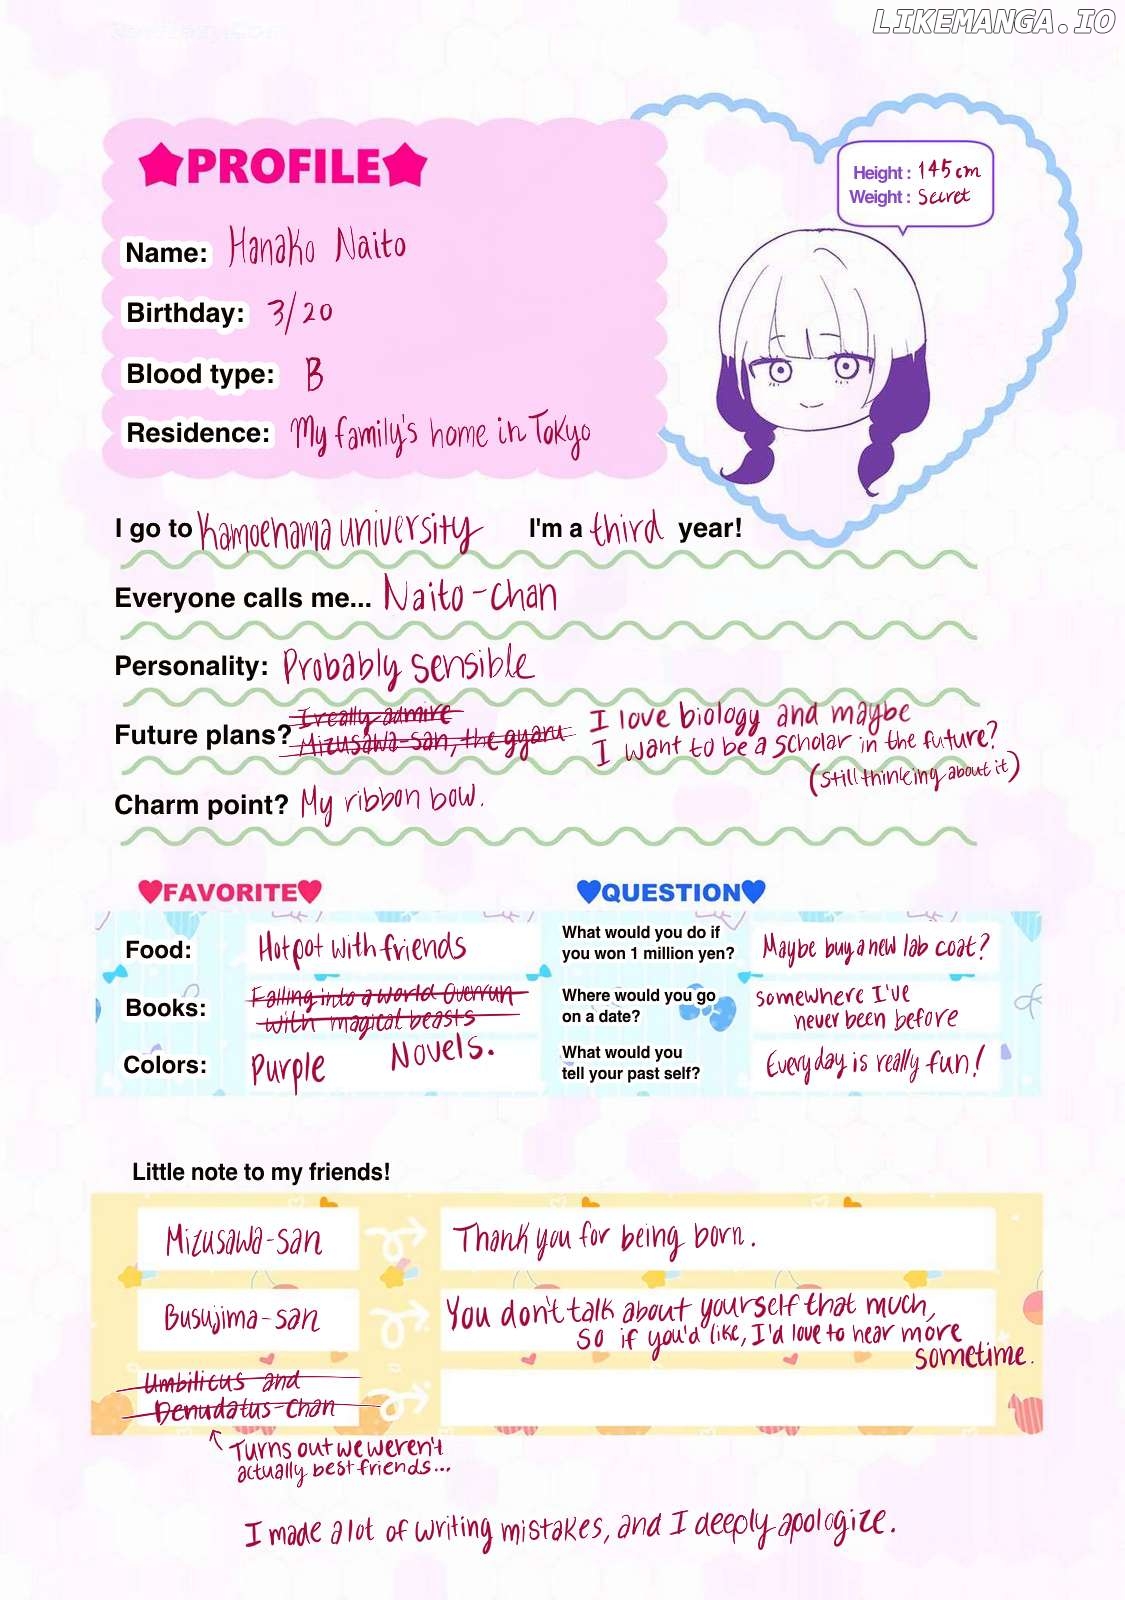 LIKEMANGA.IO
★PROFILE★
Height: 145cm
Weight: Secret
Name: Hanako Naito
Birthday: 3/20
Blood type: B
Residence: My family's home in Tokyo
I go to Kamoehama university I'm a third year!
Everyone calls me... Naito-chan
Personality: Probably sensible
Future plans? I really admire
Mizusawa-san, the gyaru
I love biology and maybe
I want to be a scholar in the future?
(still thinking about it)
Charm point? My ribbon bow.
♥FAVORITE♥
Food: Hotpot with friends
Books: Falling into a world overrun
with magical beasts
Novels.
Colors: Purple
♥QUESTION♥
What would you do if
you won 1 million yen?
Maybe buy a new lab coat?
Where would you go
on a date?
somewhere I've
never been before
What would you
tell your past self?
Everyday is really fun!
Little note to my friends!
Mizusawa-san
Thank you for being born.
Busujima-san
You don't talk about yourself that much,
so if you'd like, I'd love to hear more
sometime.
Umbilicus and
Denudatus-chan
Turns out we weren't
actually best friends...
I made a lot of writing mistakes, and I deeply apologize.